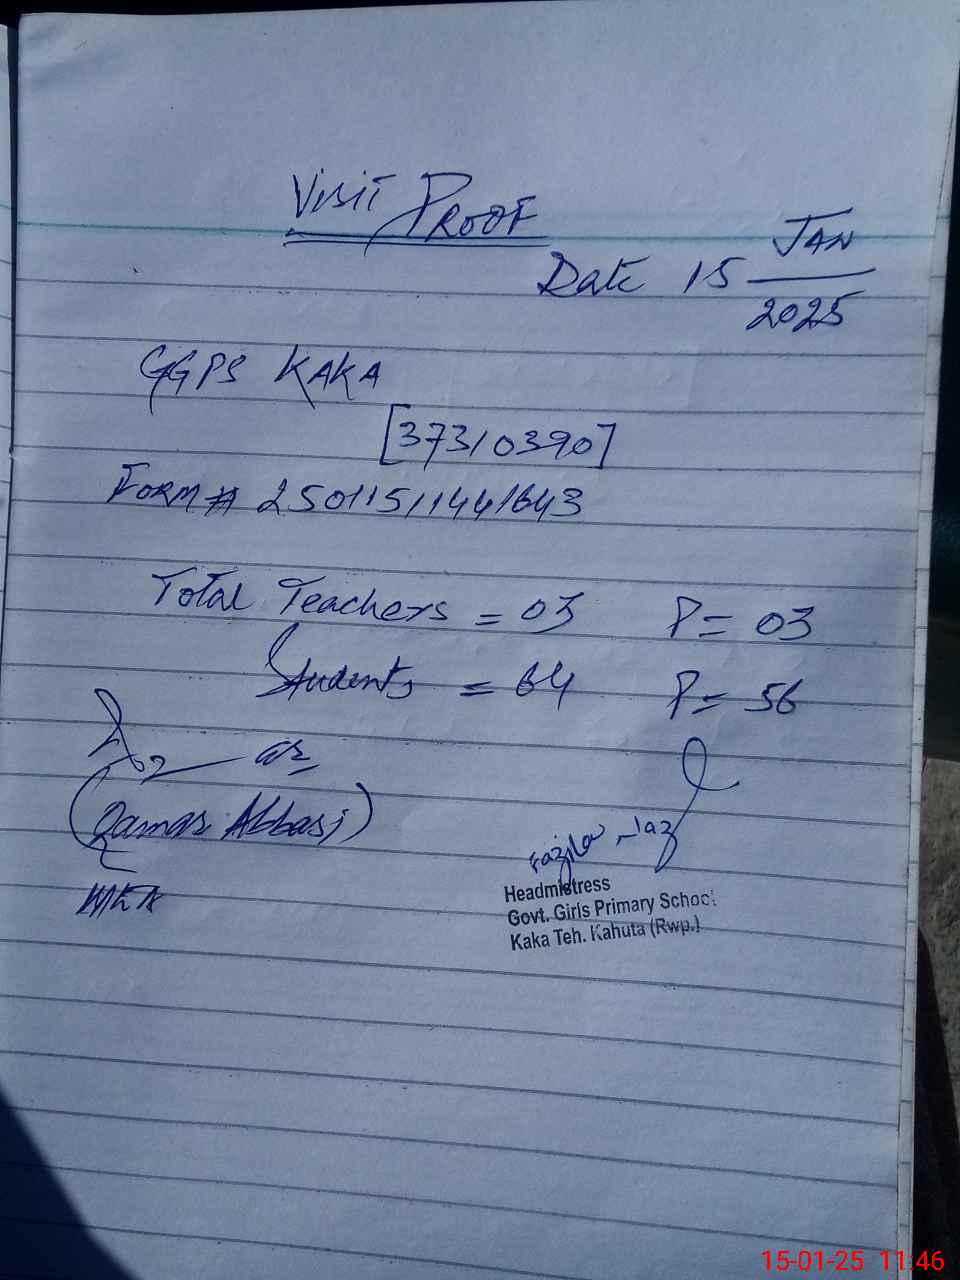 Visit PROOF
Date 15 JAN
2025
GGPS KAKA
[37310390]
FORM # 250115114441643
Total Teachers = 03 P = 03
Students = 64 P = 56
(Qamar Abbasi)
Headmistress
Govt. Girls Primary School
Kaka Teh. Kahuta (Rwp.)
15-01-25 11:46